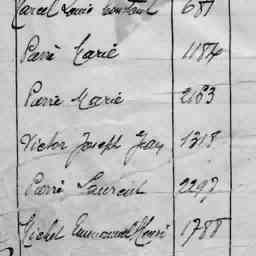 Marcel Louis Constant 687
Pierre Marie 1184
Pierre Marie 2183
Victor Joseph Jean 1318
Pierre Laurent 2297
Michel Emmanuel Henri 1788